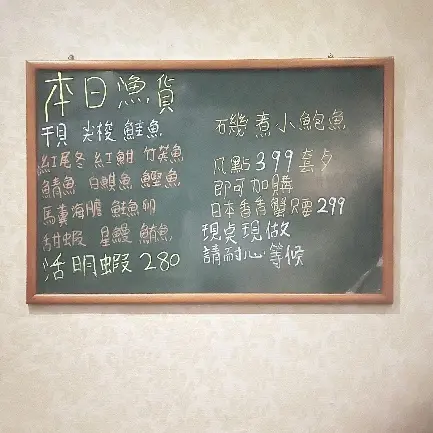 本日漁貨
干貝 尖梭 鮭魚
紅尾冬 紅魽 竹筴魚
鯖魚 白鯧魚 鰹魚
馬糞海膽 鮭魚卵
甜蝦 星鰻 魚
活明蝦 280
磯煮小鮑魚
凡點399套夕
即可加購
日本香香蟹只要299
現桌現做
請耐心等候